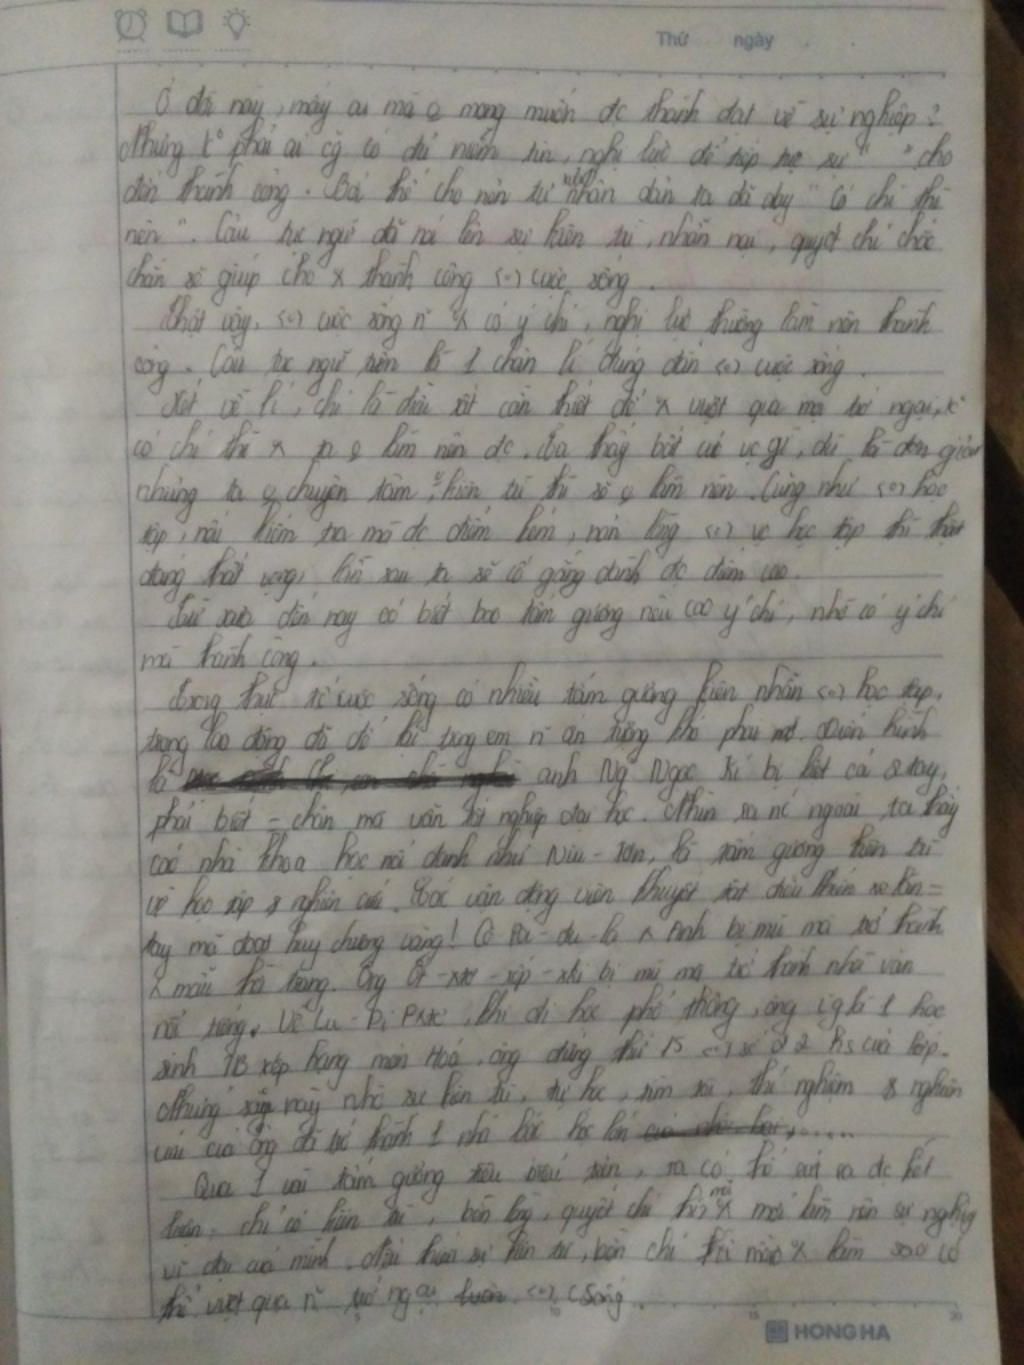 Thứ ngày
Ở đời này, mấy ai mà o mong muốn đc thành đạt về sự nghiệp?
Nhưng k° phải ai cg có đủ niềm tin, nghị lực để tiếp tục sự " " cho
đến thành công. Bởi thế cho nên từ xưa nhân dân ta đã dạy "Có chí thì
nên". Câu tục ngữ đã nói lên sự kiên trì, nhẫn nại, quyết chí chắc
chắn sẽ giúp cho x thành công (~) cuộc sống.
Thật vậy, (~) cuộc sống n~ x có ý chí, nghị lực thường làm nên thành
công. Câu tục ngữ trên là 1 chân lí đúng đắn (~) cuộc sống.
Xét về lí, chí là điều rất cần thiết để x vượt qua mọi trở ngại, k°
có chí thì x ta o làm nên đc. Ta thấy bất cứ vc gì, dù là đơn giản
nhưng ta o chuyên tâm, kiên trì thì sẽ o làm nên. Cũng như (~) học
tập, nếu kiểm tra mà đc điểm kém, nản lòng (~) vc học tập thì thật
đáng thất vọng, lần sau ta sẽ cố gắng dành đc điểm cao.
Từ xưa đến nay có biết bao tấm gương nêu cao ý chí, nhờ có ý chí
mà thành công.
Trong thực tế cuộc sống có nhiều tấm gương kiên nhẫn (~) học tập,
trong lao động đã để lại trong em n~ ấn tượng khó phai mờ. Điển hình
là anh Ng Ngọc Kí bị liệt cả 2 tay,
phải biết = chân mà vẫn tốt nghiệp đại học. Nhìn ra nc ngoài, ta thấy
các nhà khoa học nổi danh như Niu-tơn, là tấm gương kiên trì
về học tập & nghiên cứu. Các vận động viên khuyết tật điều khiển xe lăn =
tay mà đoạt huy chương vàng! Cô Pa-du-la x Anh bị mù mà trở thành
x mẫu thời trang. Ông Ốt-xtơ-rốp-xki bị mù mà trở thành nhà văn
nổi tiếng. Về Lu-i Pxtơ, khi đi học phổ thông, ông cg là 1 học
sinh TB xếp hạng môn Hoá, ông đứng thứ 15 (~) số 22 hs của lớp.
Nhưng sau này nhờ sự kiên trì, tự học, tìm tòi, thí nghiệm & nghiên
cứu của ông đã trở thành 1 nhà bác học lớn ......
Qua 1 vài tấm gương tiêu biểu trên, ta có thể rút ra đc kết
luận: chỉ có kiên trì, bền lòng, quyết chí thì mỗi x mới làm nên sự nghiệp
vĩ đại của mình. Nếu thiếu sự kiên trì, bền chí thì mỗi x làm sao có
thể vượt qua n~ trở ngại (~) c sống.
HONG HA